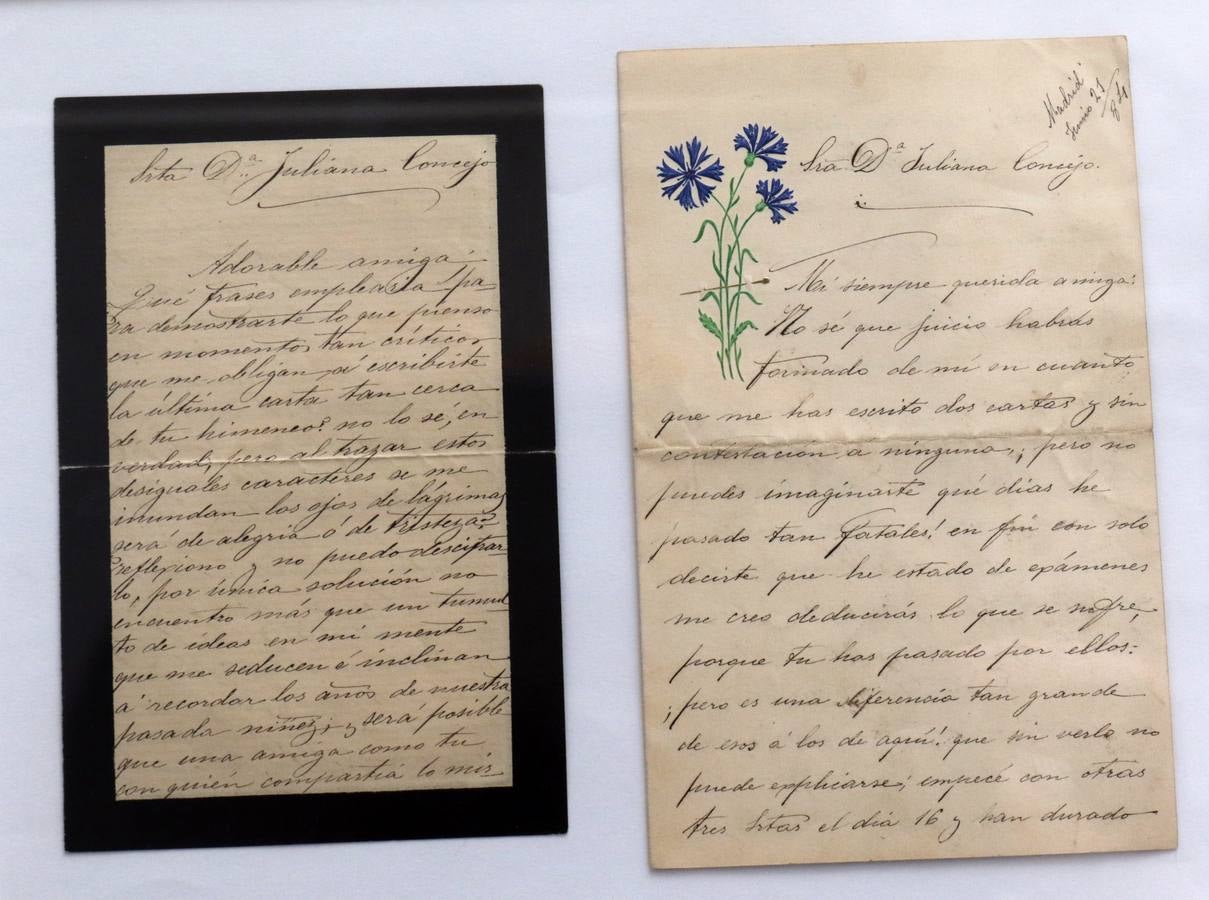 Srta D.ª Juliana Concejo
Adorable amiga:
Qué frases emplearía pa
ra demostrarte lo que pienso
en momentos tan críticos
que me obligan á escribirte
la última carta tan cerca
de tu himeneo? no lo sé, en
verdad, pero al trazar estos
desiguales caracteres se me
inundan los ojos de lágrimas
será de alegria ó de tristeza?
reflexiono y no puedo descifrar
lo, por única solución no
encuentro más que un tumul
to de ideas en mi mente
que me seducen é inclinan
á recordar los años de nuestra
pasada niñez; y será posible
que una amiga como tu
con quién compartía lo mis
Madrid
Junio 21
Sra Dª Juliana Concejo.
Mi siempre querida amiga:
No sé que juicio habrás
formado de mí en cuanto
que me has escrito dos cartas y sin
contestación a ninguna, ¡pero no
puedes imaginarte qué dias he
pasado tan fatales! en fin con solo
decirte que he estado de exámenes
me creo deducirás lo que se sufre,
porque tu has pasado por ellos:
¡pero es una diferencia tan grande
de esos á los de aquí! que sin verlo no
puede explicarse; empecé con otras
tres Srtas el dia 16 y han durado